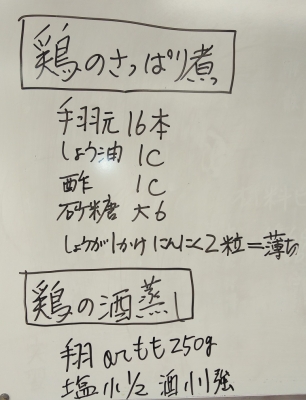 鶏のさっぱり煮
手羽元 16本
しょう油 1C
酢 1C
砂糖 大6
しょうが1かけ にんにく2粒=薄切
鶏の酒蒸し
手羽 orもも250g
塩小1/2 酒小1強